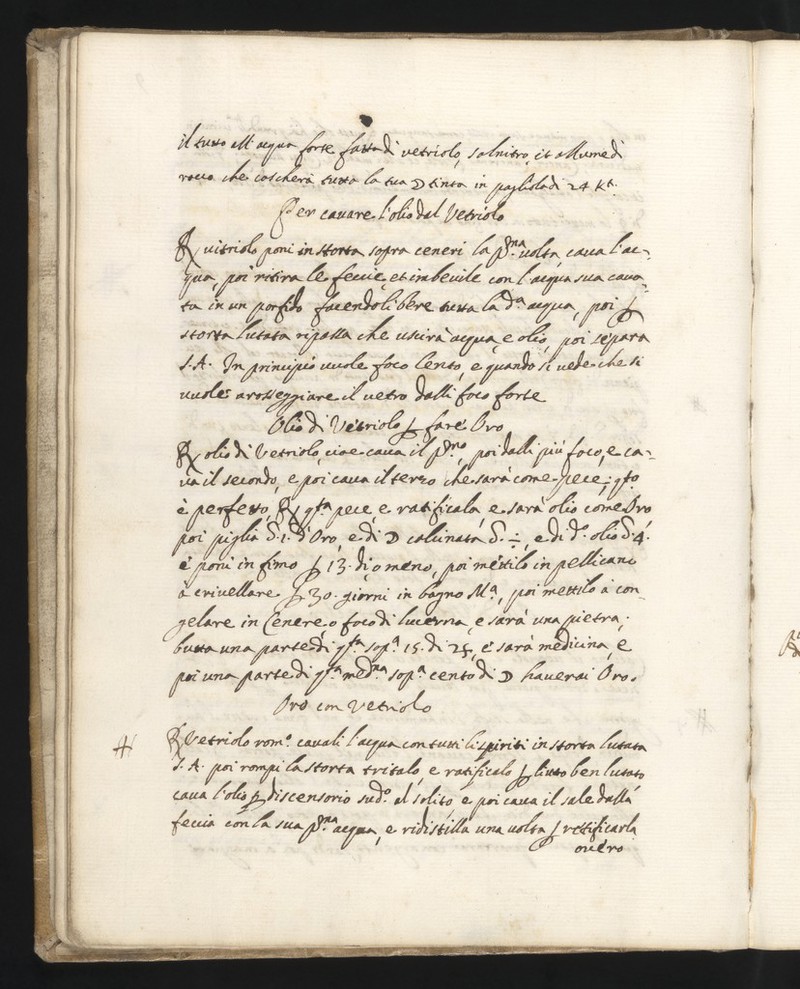 il tutto all'acqua forte fatta di vetriolo, salnitro, et allume di
roco che cascherà tutta la tua ☽ tinta in pagliola di 24 Kt.
Per cavare l'olio dal Vetriolo
℞ vitriolo poni in storta sopra ceneri la pr.na volta, cava l'ac-
qua, poi ritira le feccie, et imbevile con l'acqua sua cava-
ta in un porfido facendoli bere tutta la d.a acqua, poi ꝑ
storta lutata ripassa che uscirà acqua, e olio, poi separa
S.A. In principio vuole foco lento, e quando si vede che si
vuole arosseggiare il vetro dalli foco forte
Olio di Vetriolo ꝑ fare Oro
℞ olio di Vetriolo, cioe cava il pr.mo, poi dalli più foco, e ca-
va il secondo, e poi cava il terzo che sarà come pece; q.to
è perfetto, ℞ q.ta pece, e ratificala, e sarà olio come Oro
poi piglia d. 1. d'Oro, e di ☽ calcinata d. ÷, e di d.o olio d. 4.
e poni in fimo ꝑ 13. dì o meno, poi mettilo in pellicano
à crivellare ꝑ 30. giorni in bagno M.a, poi mettilo à con-
gelare in Cenere o foco di lucerna, e sarà una pietra;
butta una parte di q.ta sop.a 15. di 25, e sarà medicina, e
poi una parte di q.ta med.na sop.a cento di ☽ haverai Oro.
Oro con Vetriolo
℞ Vetriolo rom.o cavali l'acqua con tutti li spiriti in storta lutata
S.A. poi rompi la storta tritalo, e ratificalo ꝑ liuto ben lutato
cava l'olio ꝑ discensorio sud.o al solito, e poi cava il sale dalla
feccia con la sua pr.na acqua, e ridistilla una volta ꝑ retificarla
overo